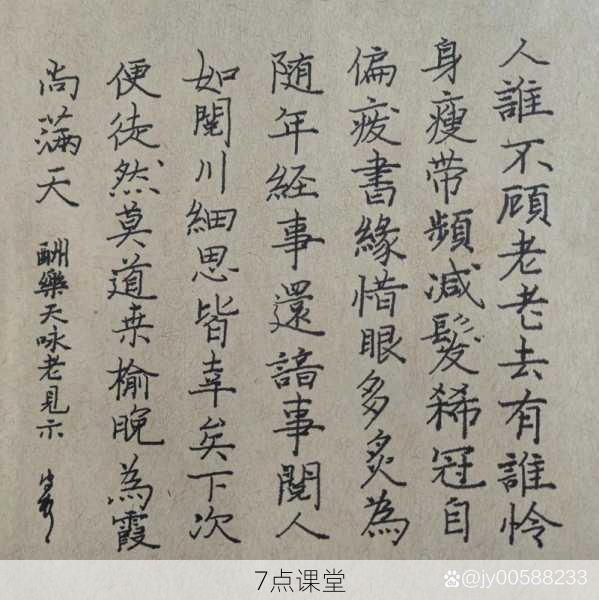 人誰不顾老老去有誰怜
身瘦带頻减髮稀冠自
偏废書緣惜眼多炙為
随年経事還諳事閱人
如閱川細思皆幸矣下次
便徒然莫道桒榆晚為霞
尚满天
酬樂天咏老見示
7点课堂
@jy00588233